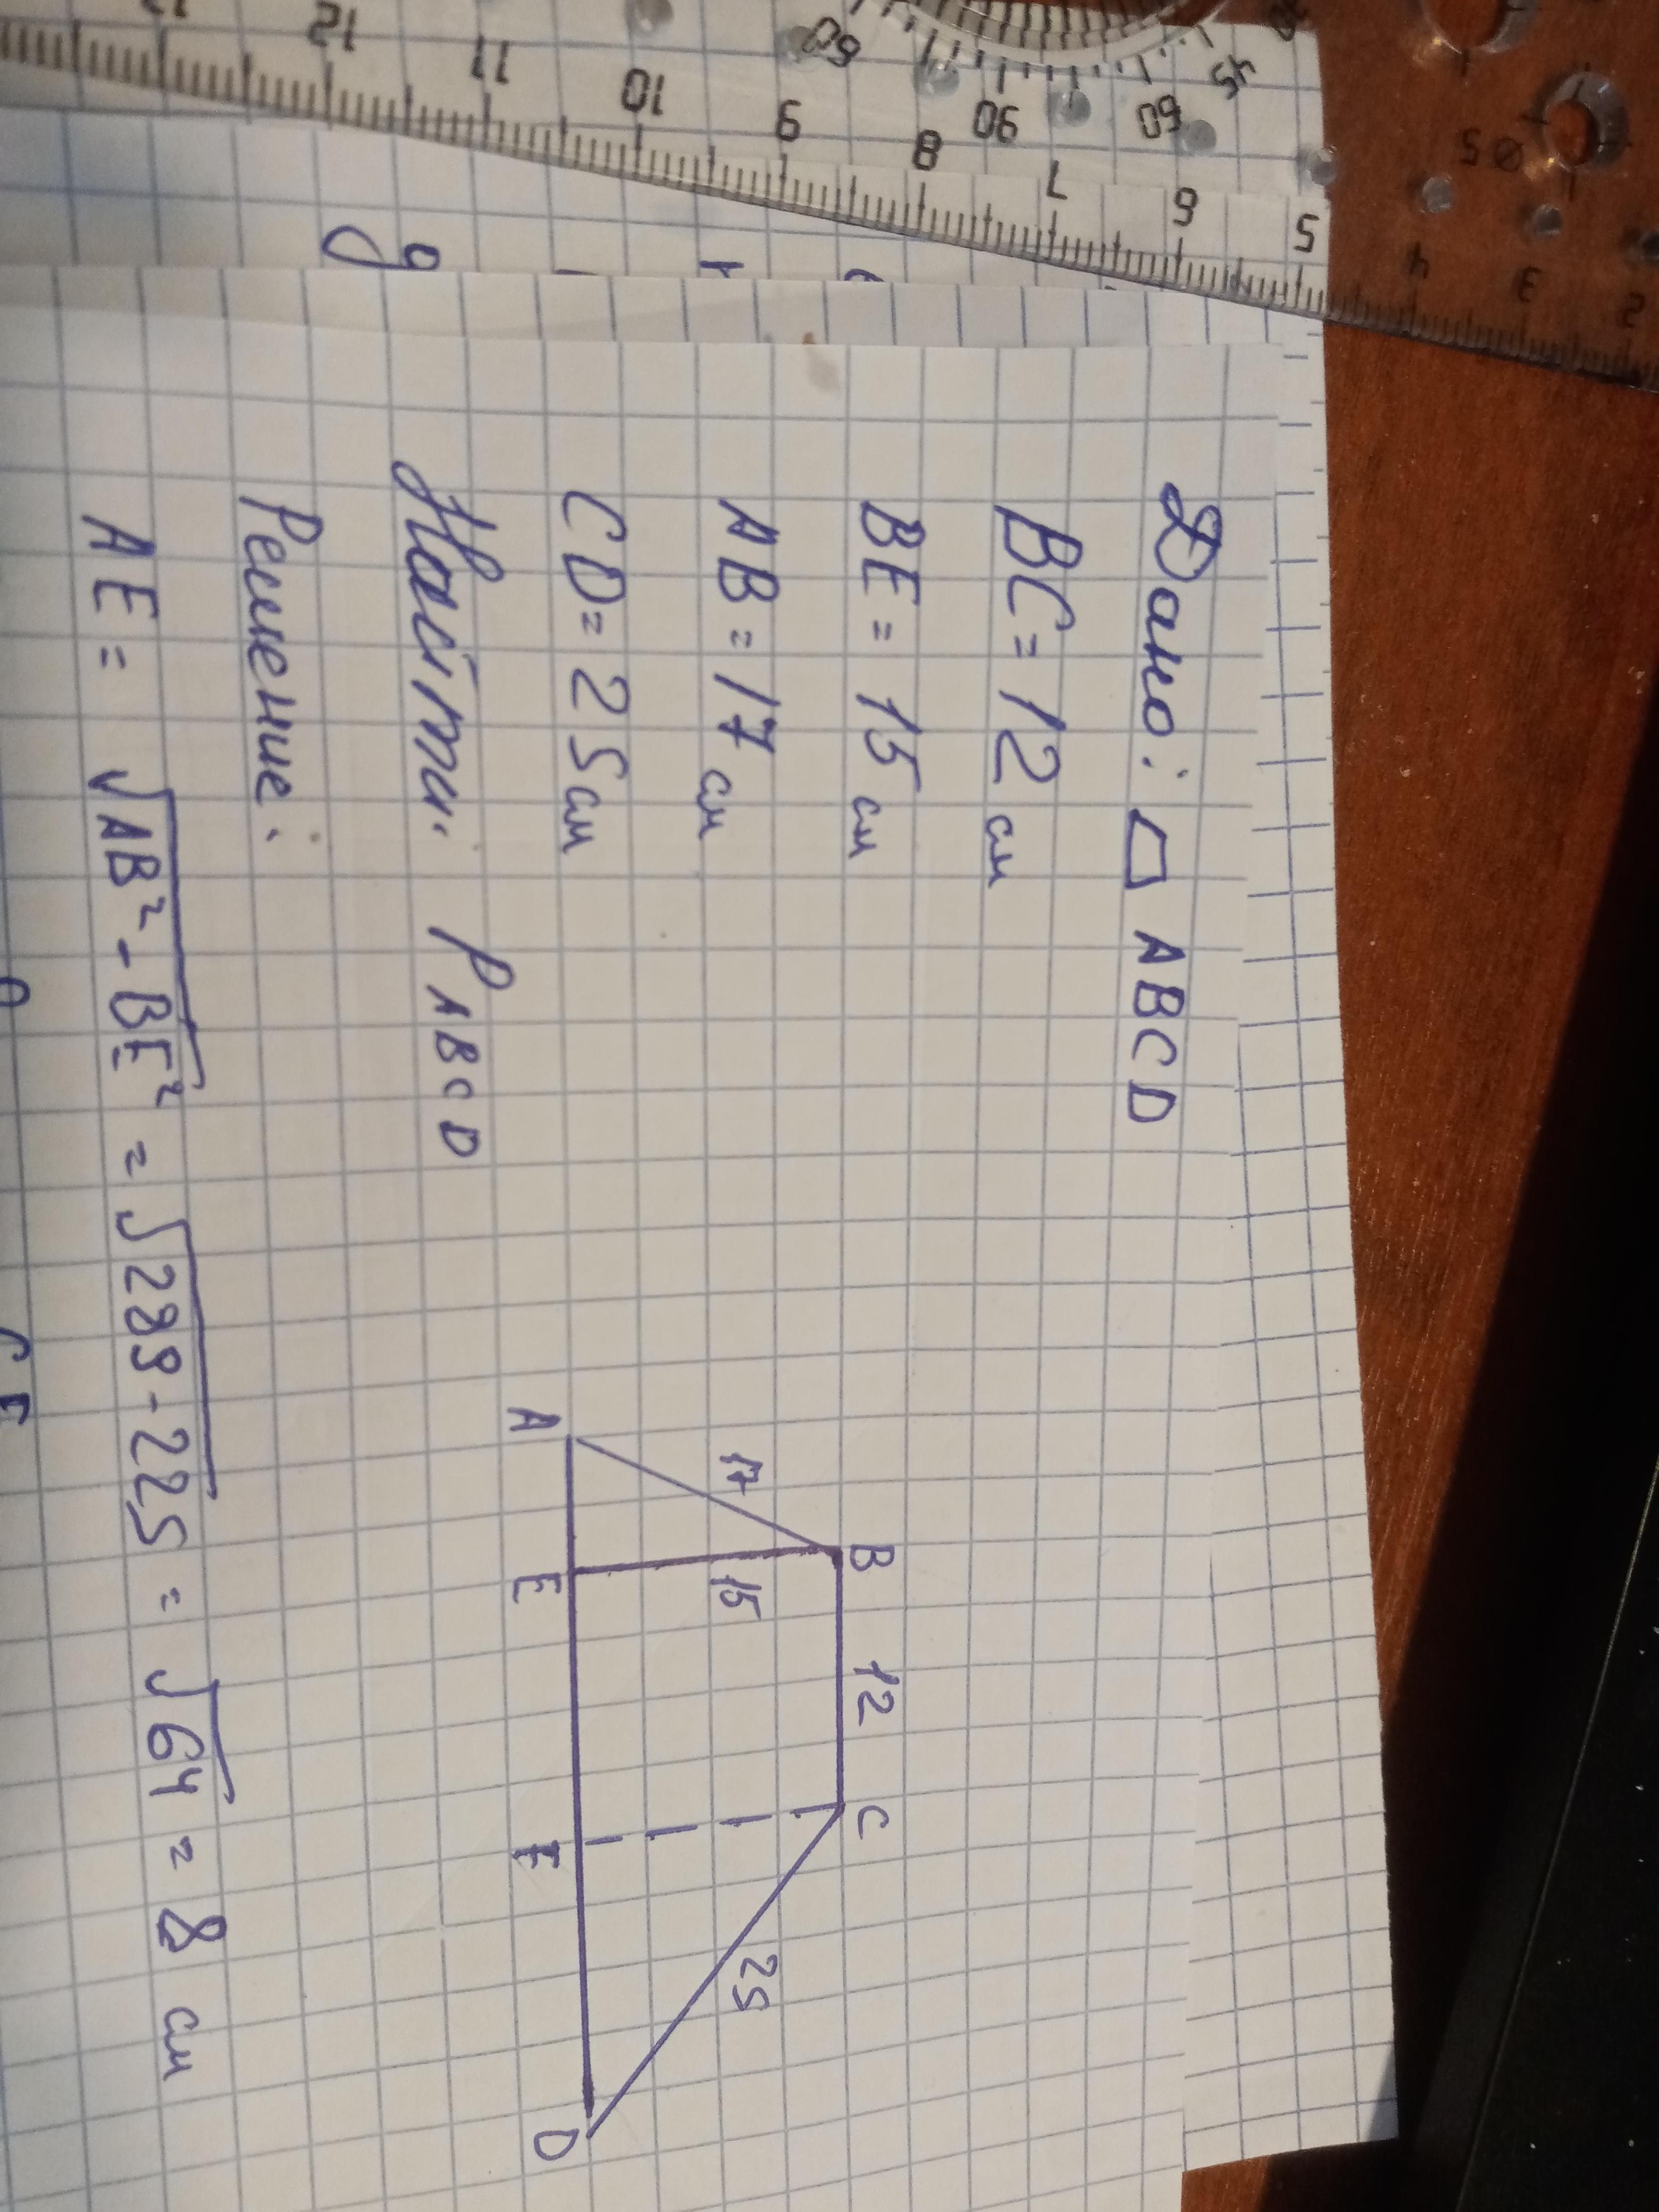 Дано: ▱ ABCD
BC = 12 см
BE = 15 см
AB = 17 см
CD = 25 см
Найти: P ABCD
Решение:
AE = √AB² - BE² = √289 - 225 = √64 = 8 см
B 12 C
17 15 25
A E F D
12 11 10 9 8 7 6 5 4 3 2
60 90 60 45
Ø5